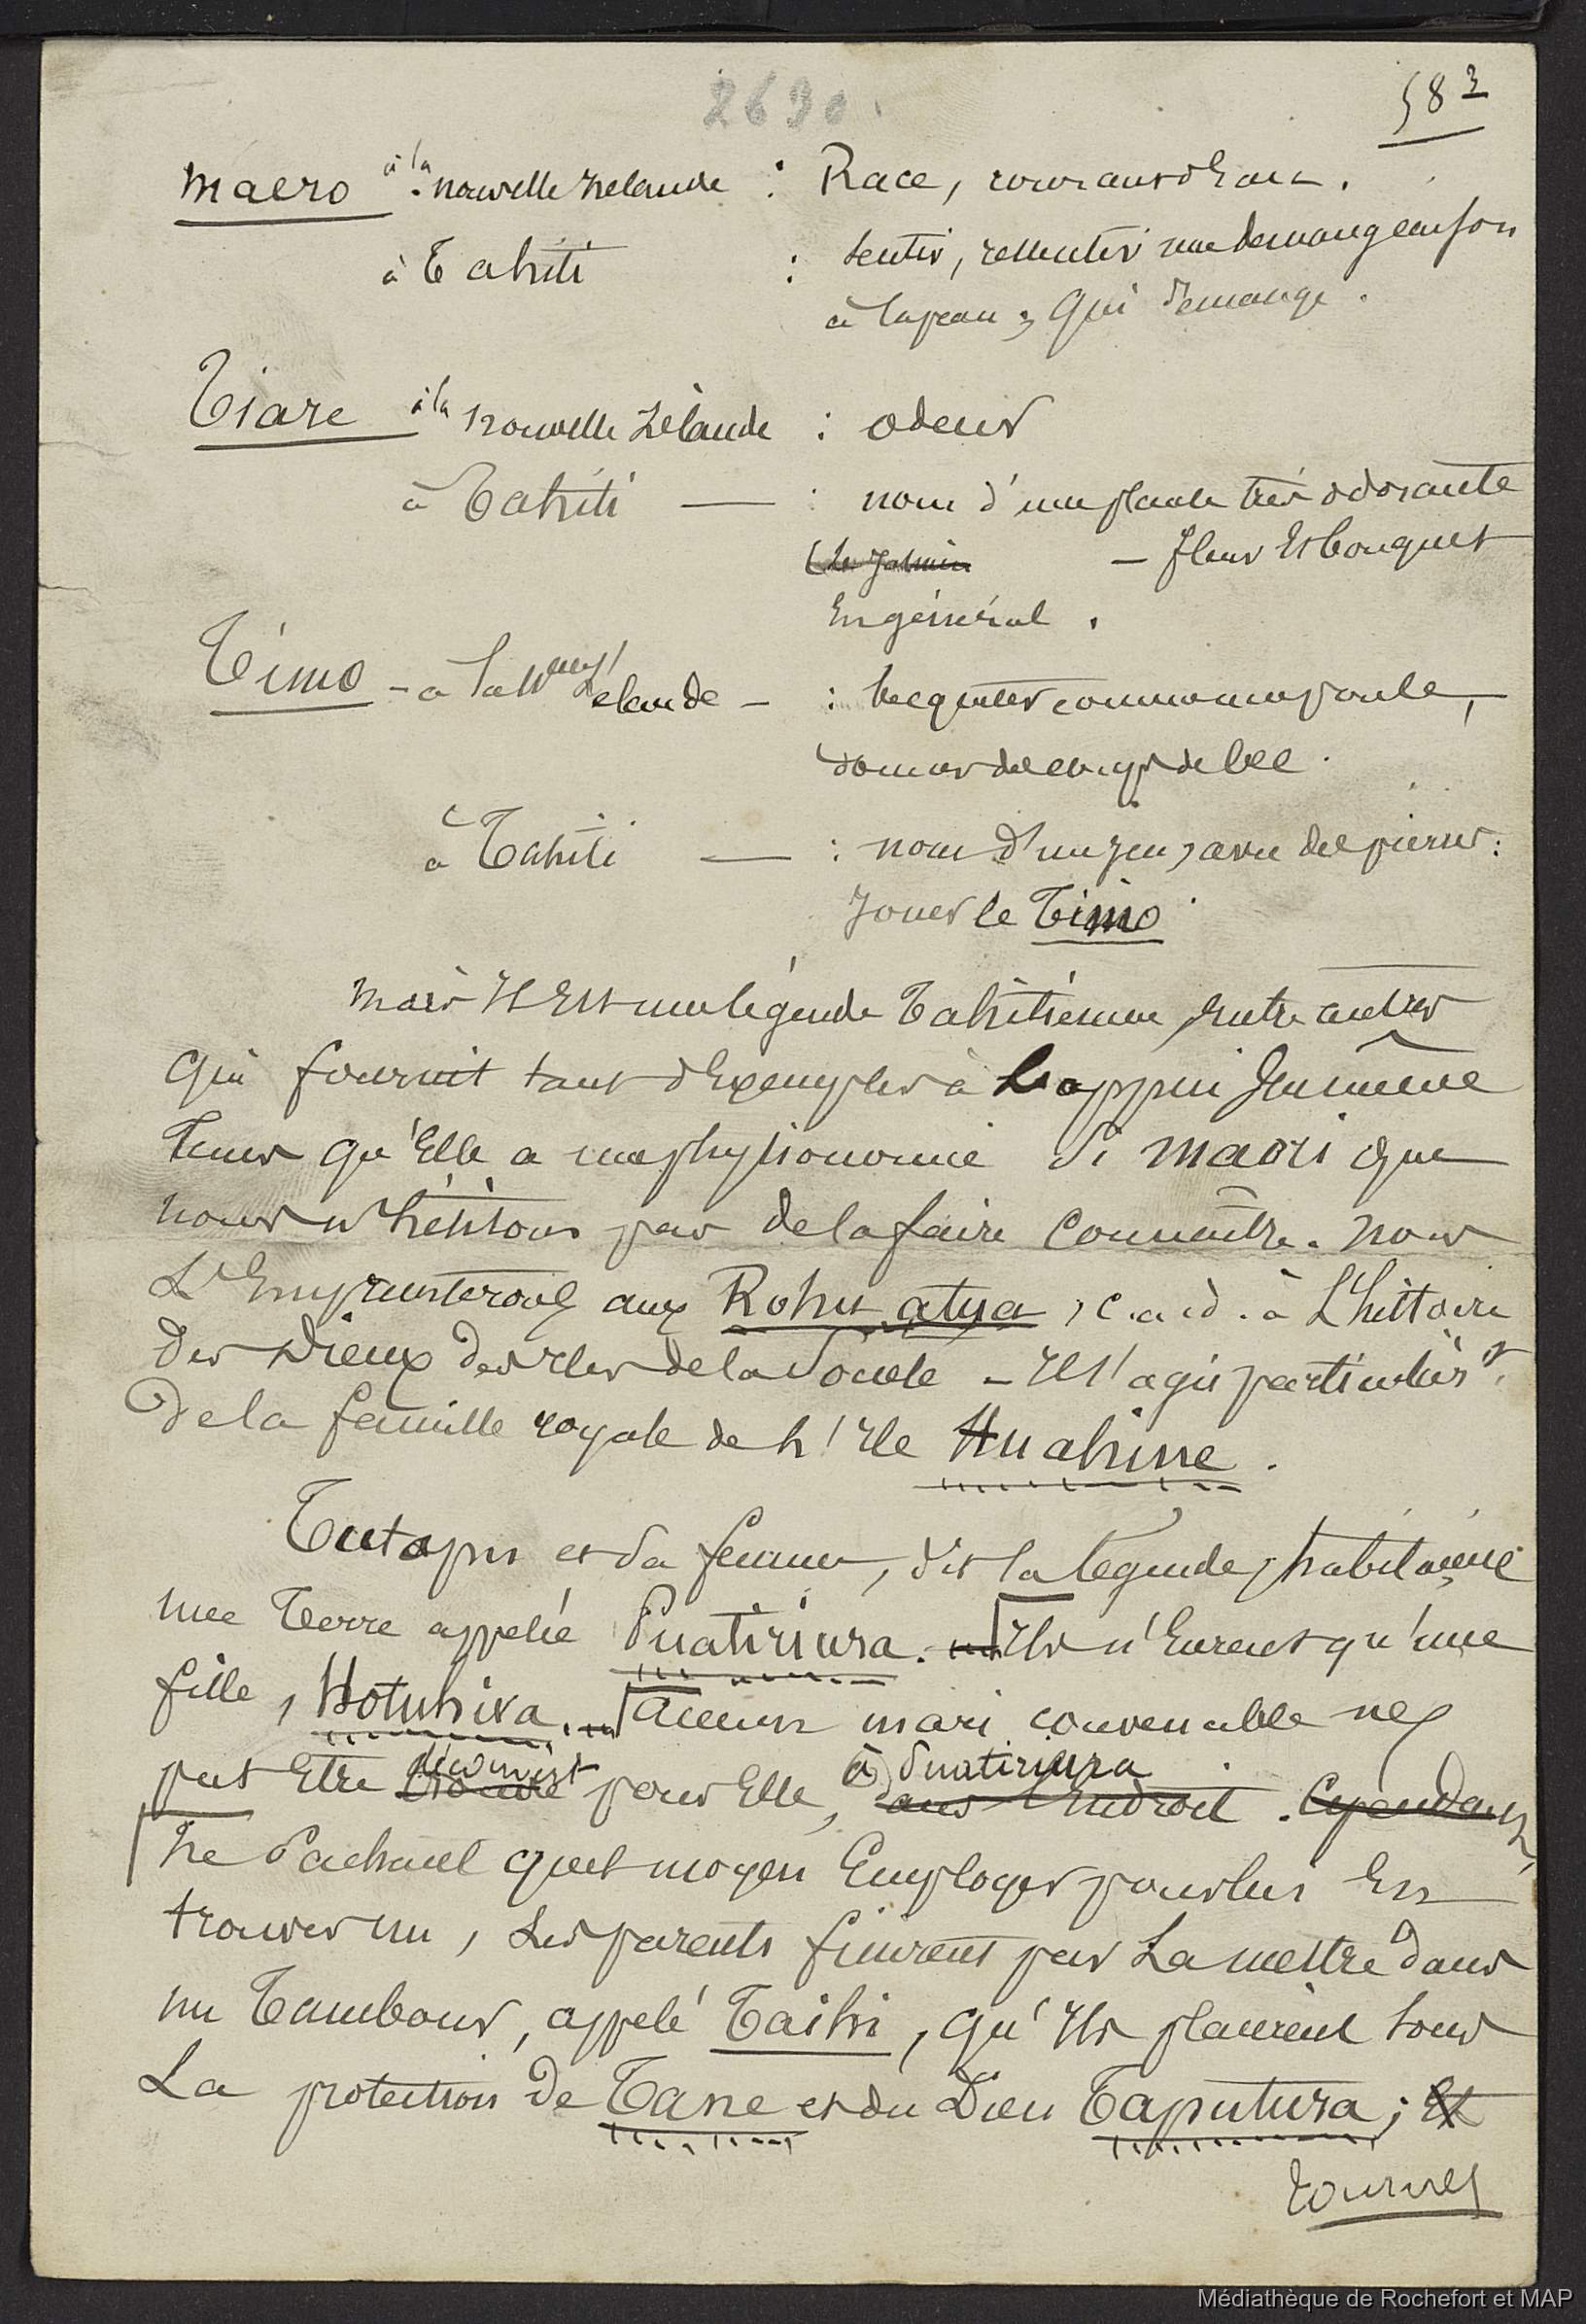 2690.
583
maero à la nouvelle Zélande : Race, courant d'eau.
à Tahiti : sentir, ressentir une démangeaison
à la peau ; qui démange.
Tiare à la nouvelle Zélande : odeur
à Tahiti — : nom d'une plante très odorante
(le Jasmin — fleur et bouquet
En général.
Timo - à la Nouv. Zelande - : becqueter comme une poule,
donner des coups de bec.
à Tahiti — : nom d'un jeu, avec des pierres :
Jouer le Timo.
mais Il Est une légende Tahitienne, Entre autres
qui fournit tant d'Exemples à L'appui En même
Temps qu'Elle a une physionomie si maori que
nous n'hésitons pas de la faire connaître. nous
L'Emprunterons aux Rohu atua, c.a.d. à L'histoire
Des Dieux des Iles de la Société - Il s'agit particulièrt.
De la famille royale de L'Ile Huahine.
Tutapu et sa femme, dit la légende, habitaient
une Terre appelée Puatiriura. Ils n'Eurent qu'une
fille, Hotuhiva. Aucun mari convenable ne
put Etre trouvé découvert pour Elle, dans l'Endroit à Puatiriura. Cependant,
Ne Sachant quel moyen Employer pour lui En
trouver un, Les parents finirent par La mettre dans
un Tambour, appelé Taihi, qu'Ils placèrent sous
La protection de Tane et du Dieu Taputura ; Et
tournez
Médiathèque de Rochefort et MAP